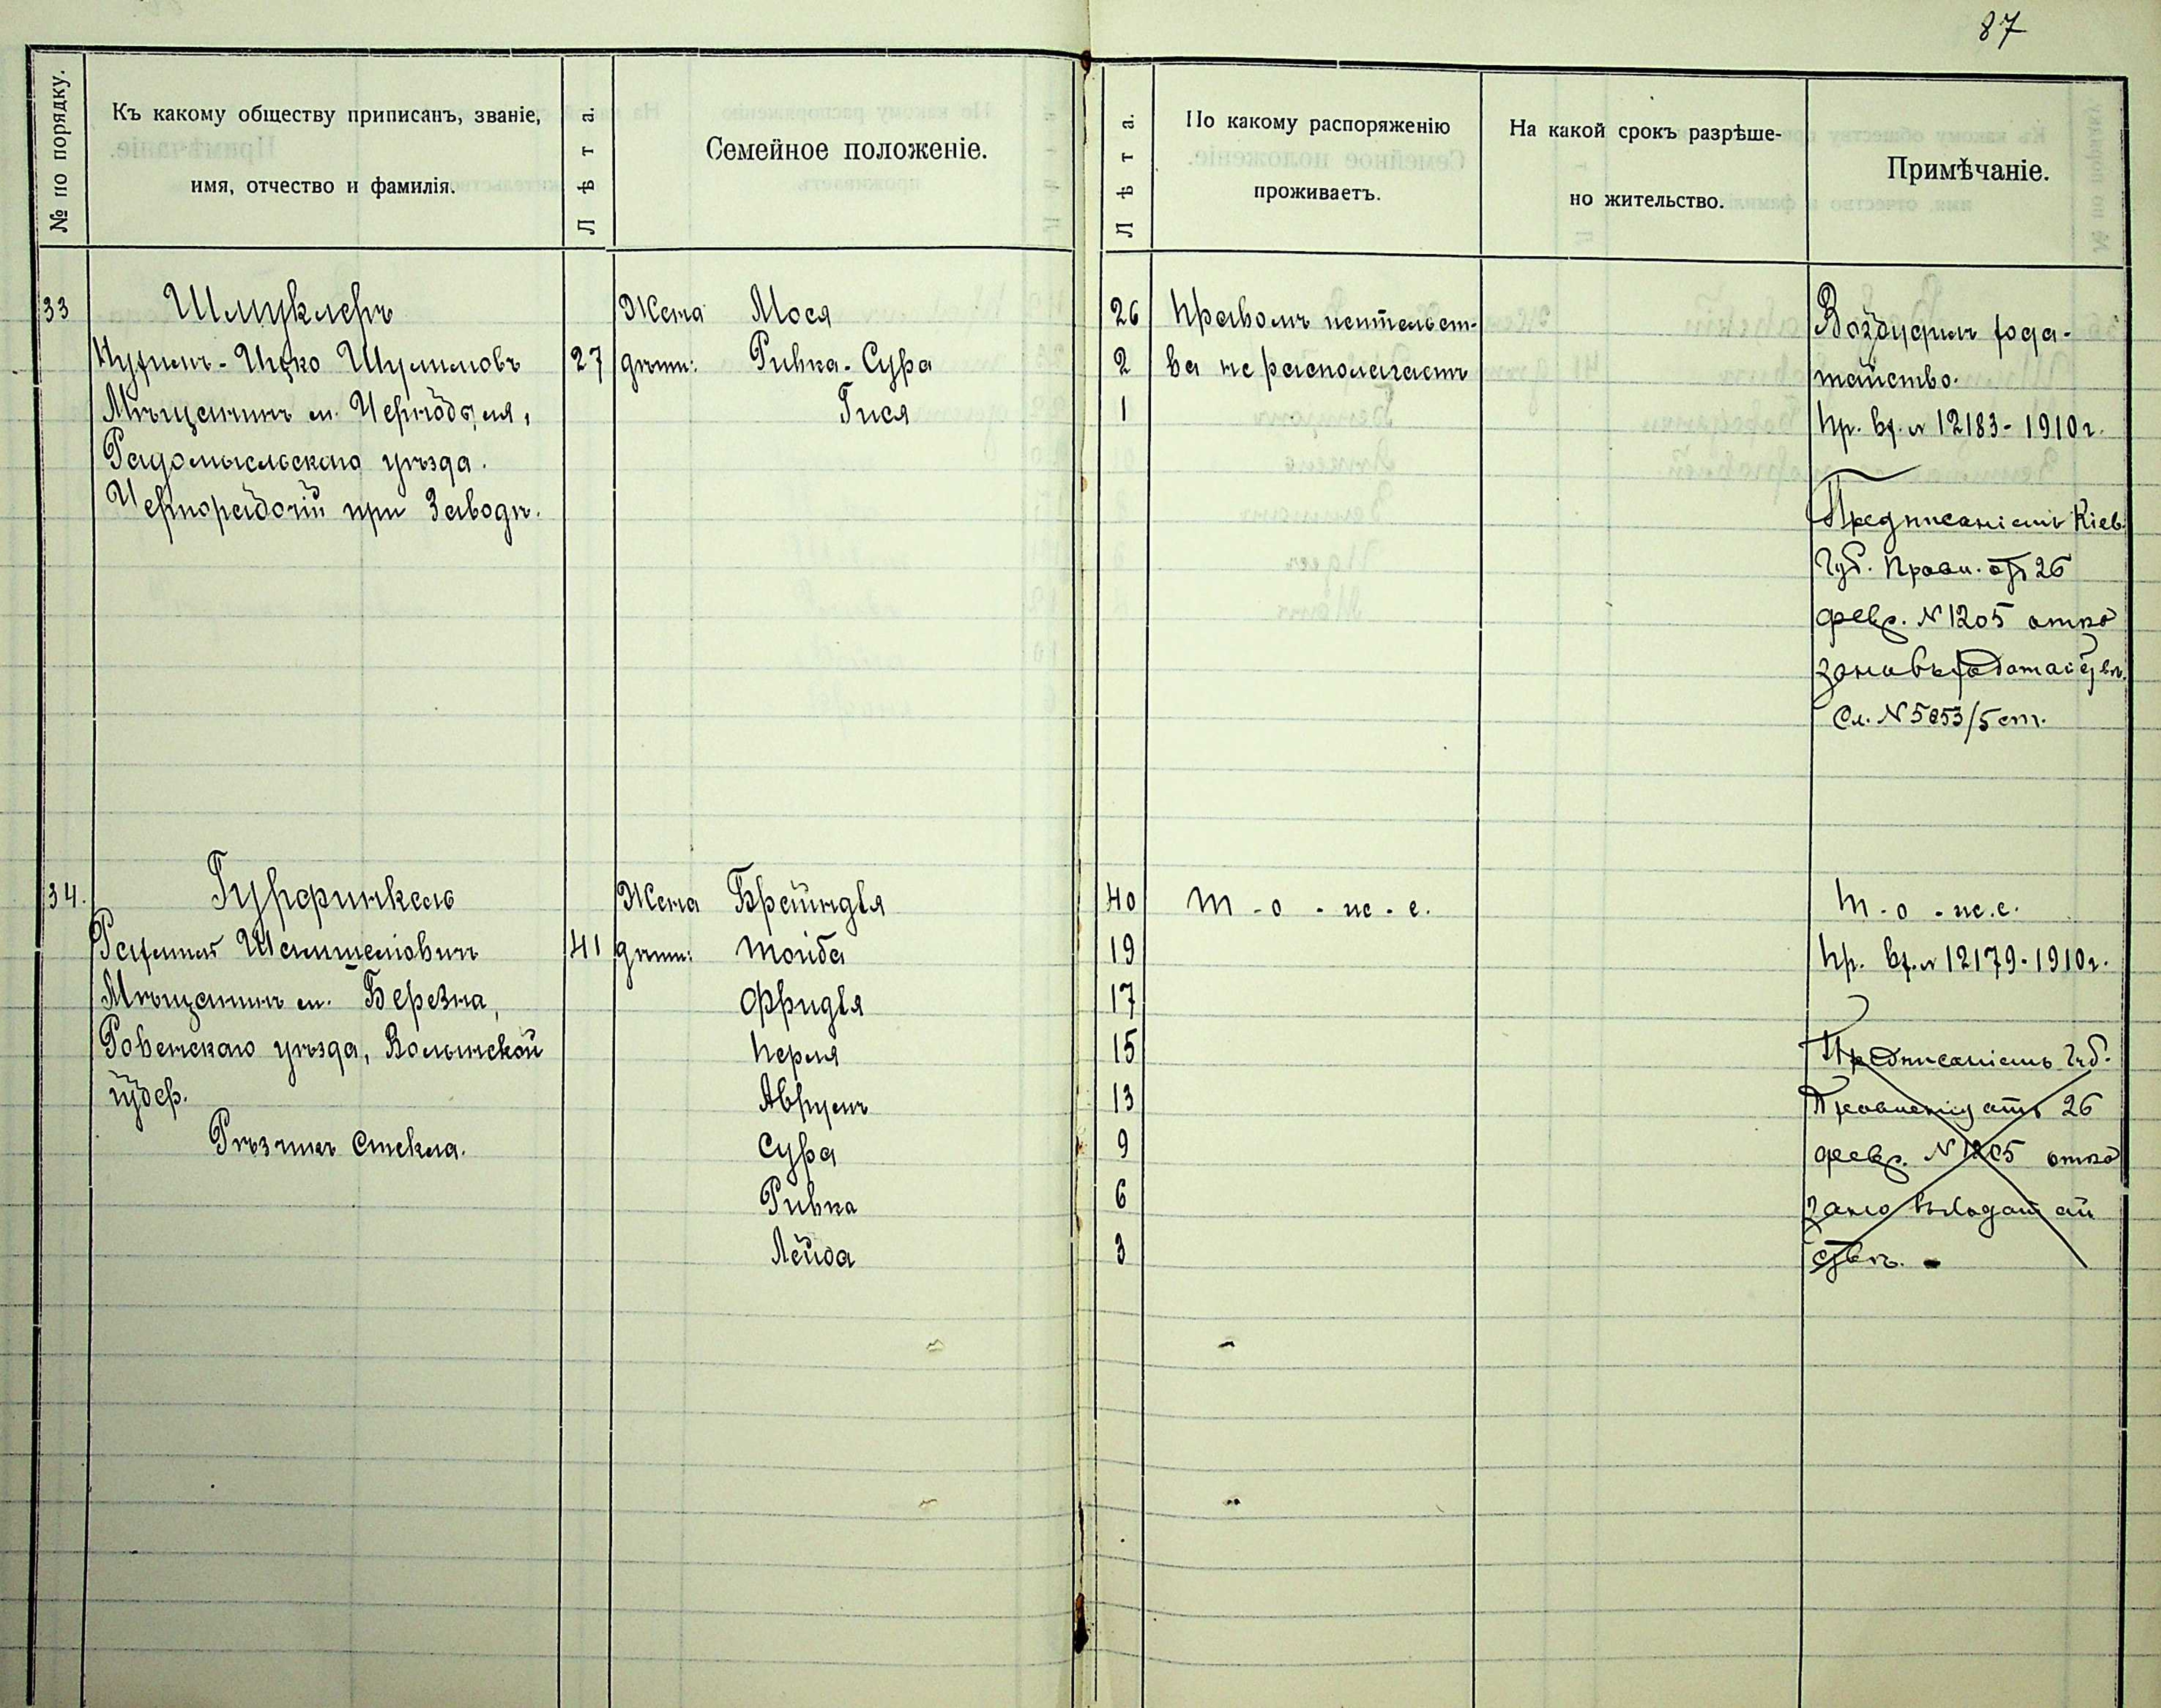 87
№ по порядку.
Къ какому обществу приписанъ, званіе,
имя, отчество и фамилія.
Лѣта.
Семейное положеніе.
Лѣта.
По какому распоряженію
проживаетъ.
На какой срокъ разрѣше-
но жительство.
Примѣчаніе.
33 Шмуклеръ Жена Мося 26 Правомъ жительст- Возбудилъ хода-
Ицко Шулимовъ 27 дѣти: Ривка-Сура 2 ва не располагаетъ тайство.
Мѣщанинъ м. Чернобыля, Гися 1 Пр. вх. № 12183-1910 г.
Радомысльскаго уѣзда.
Чернорабочій при Заводѣ.
Предписаніемъ Кіев.
Губ. Правл. отъ 26
февр. № 1205 отка
зано въ ходатайствѣ.
См. № 5853/5 ст.
34. Гурфинкель Жена Брейндля 40 т-о-ж-е. т-о-ж.е.
Рахмил Шамшелiовичъ 41 дѣти: Тойба 19 Пр. вх. № 12179-1910 г.
Мѣщанинъ м. Березна, Фридля 17
Ровенскаго уѣзда, Волынской Перля 15 Предписаніемъ Губ.
губер. Аврумъ 13 Правленія отъ 26
Рѣзчикъ Стекла. Сура 9 февр. № 1205 отка
Ривка 6 зано въ ходатай
Лейба 3 ствѣ.